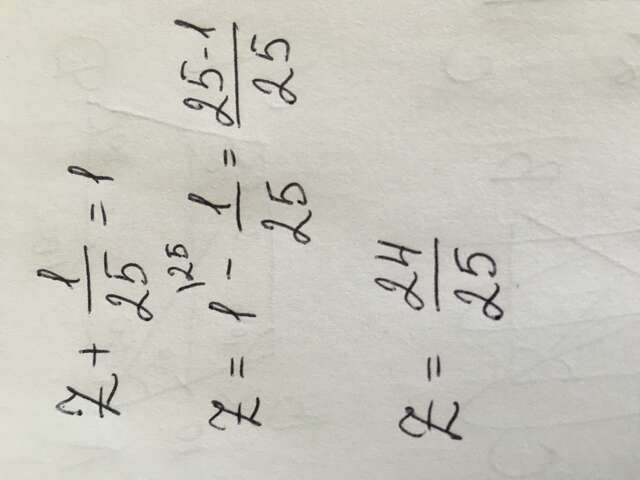 z + 1/25 = 1
z = 1\25 - 1/25 = 25-1/25
z = 24/25